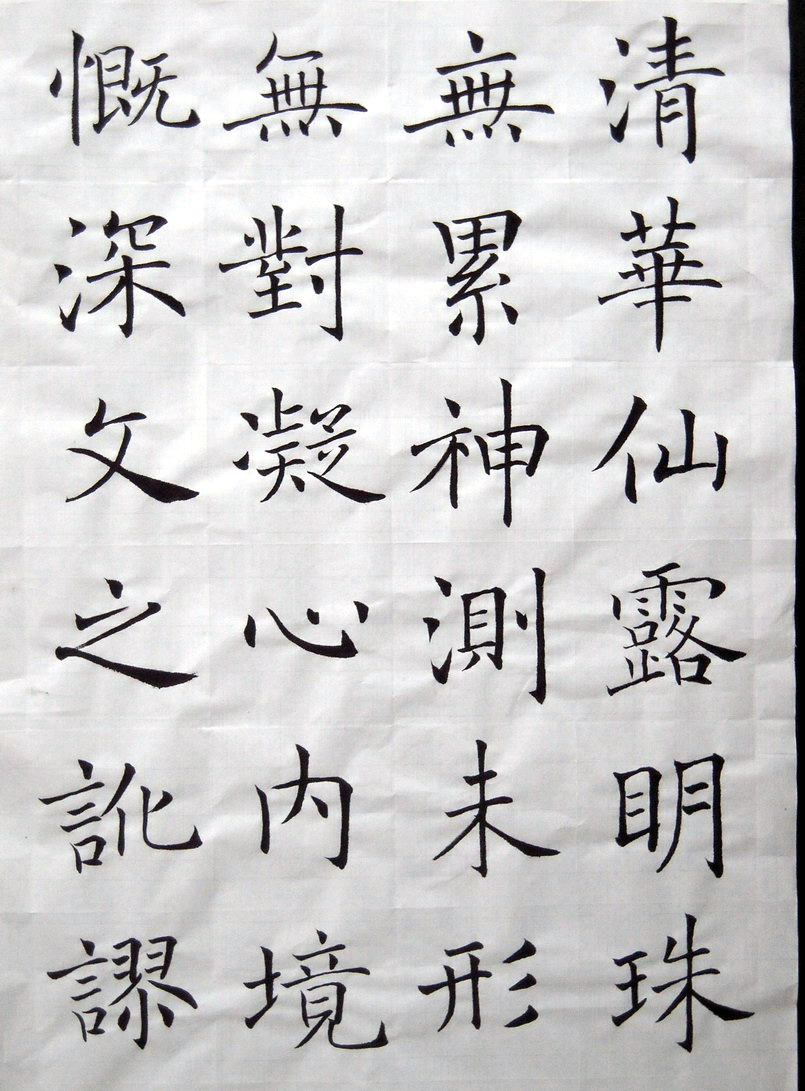 清華仙露明珠
無累神測未形
無對凝心內境
慨深文之訛謬